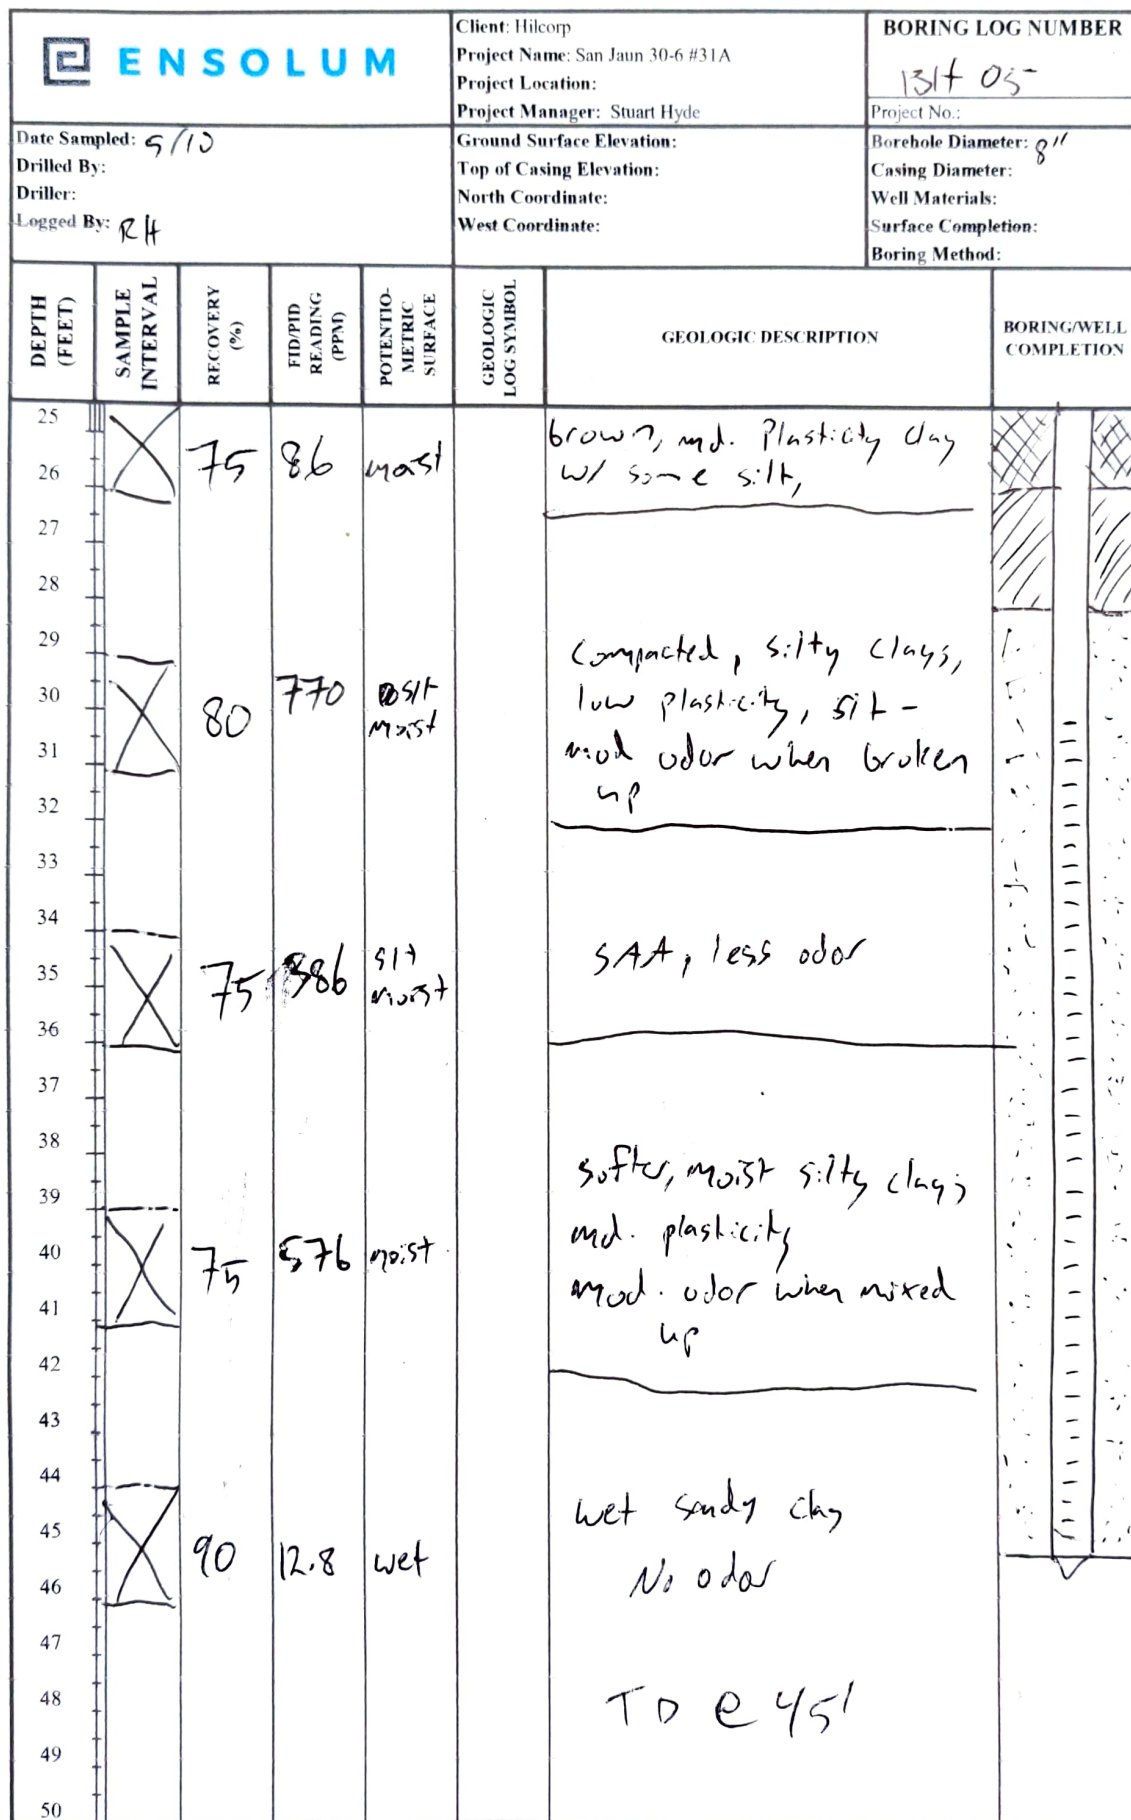 ENSOLUM
Client: Hilcorp
Project Name: San Jaun 30-6 #31A
Project Location:
Project Manager: Stuart Hyde
BORING LOG NUMBER
BH 05
Project No.:
Date Sampled: 5/10
Drilled By:
Driller:
Logged By: RH
Ground Surface Elevation:
Top of Casing Elevation:
North Coordinate:
West Coordinate:
Borehole Diameter: 8"
Casing Diameter:
Well Materials:
Surface Completion:
Boring Method:
DEPTH (FEET)
SAMPLE INTERVAL
RECOVERY (%)
FID/PID READING (PPM)
POTENTIO-METRIC SURFACE
GEOLOGIC LOG SYMBOL
GEOLOGIC DESCRIPTION
BORING/WELL COMPLETION
25
brown, md. Plasticity clay
26 75 86 moist w/ some silt,
27
28
29
compacted, silty clays,
30 80 770 slt moist low plasticity, slt -
31 mod odor when broken
up
32
33
34
35 75 386 slt moist SAA, less odor
36
37
38
softer, moist silty clays
39
md. plasticity
40 75 576 moist
41 mod. odor when mixed
up
42
43
44
wet sandy clay
45 90 12.8 wet
46 No odor
47
48 TD @ 45'
49
50